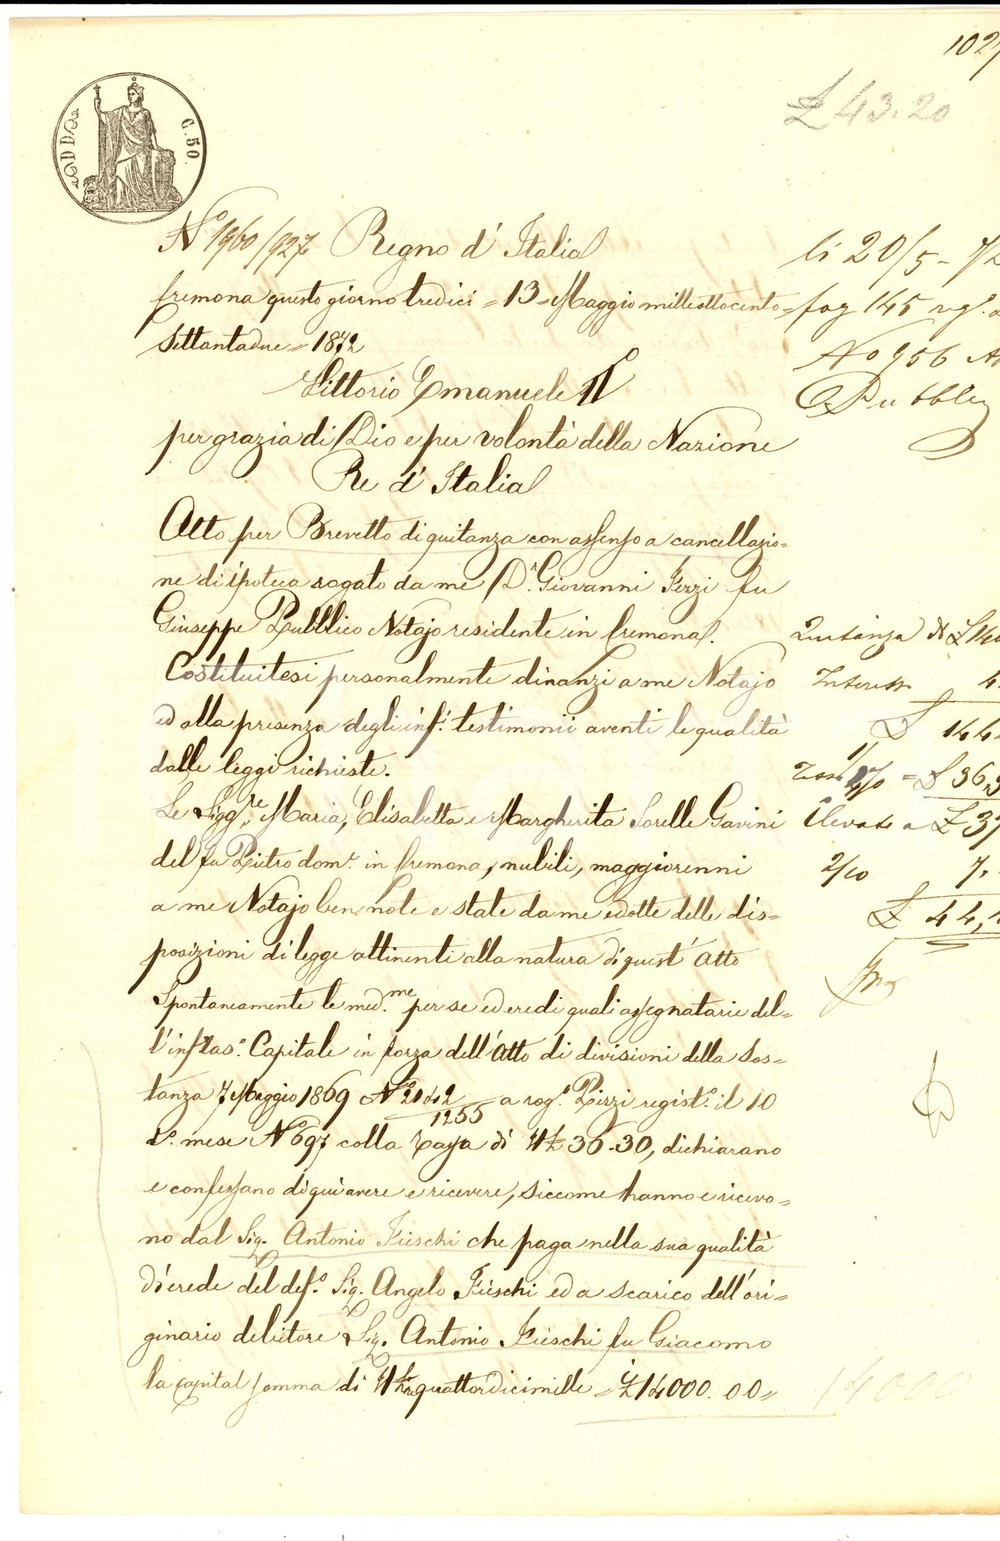 102
£ 43.20
C. 50.
N.° 1960/927 Regno d'Italia
Cremona questo giorno tredici = 13 = Maggio mille ottocento=
settantadue = 1872
Vittorio Emanuele II°
per grazia di Dio e per volontà della Nazione
Re d'Italia
Atto per Brevetto di quitanza con assenso a cancellazio=
ne di ipoteca rogato da me D.r Giovanni fu
Giuseppe Pubblico Notajo residente in Cremona.
Costituitesi personalmente dinanzi a me Notajo
ed alla presenza degli inf.i testimonii aventi le qualità
dalle leggi richieste.
Le Sigg.re Maria, Elisabetta e Margherita Sorelle Gavini
del fu Pietro dom.e in Cremona, nubili, maggiorenni
a me Notajo ben note e state da me edotte delle dis=
posizioni di legge attinenti alla natura di quest'Atto
Spontaneamente le med.me per se ed eredi quali assegnatarie del=
l'infras.o Capitale in forza dell'Atto di divisioni della sos=
tanza 7 Maggio 1869 N.° 2042/1255 a rog.o Pizzi regist.o il 10
d.o mese N.° 697 colla Tassa di 36.30, dichiarano
e confessano di qui avere e ricevere, siccome hanno e ricevo=
no dal Sig. Antonio Fieschi che paga nella sua qualità
di erede del def.o Sig. Angelo Fieschi ed a scarico dell'ori=
ginario debitore Sig. Antonio Fieschi fu Giacomo
la capital somma di quattordicimille = £ 14000.00=
li 20/5 - 72
fog 145 
N.o 956
Quitanza di £ 140
Interessi 4
£ 144
= £ 36,3
Elevate a £ 37
2/10 7.
£ 44,
14000